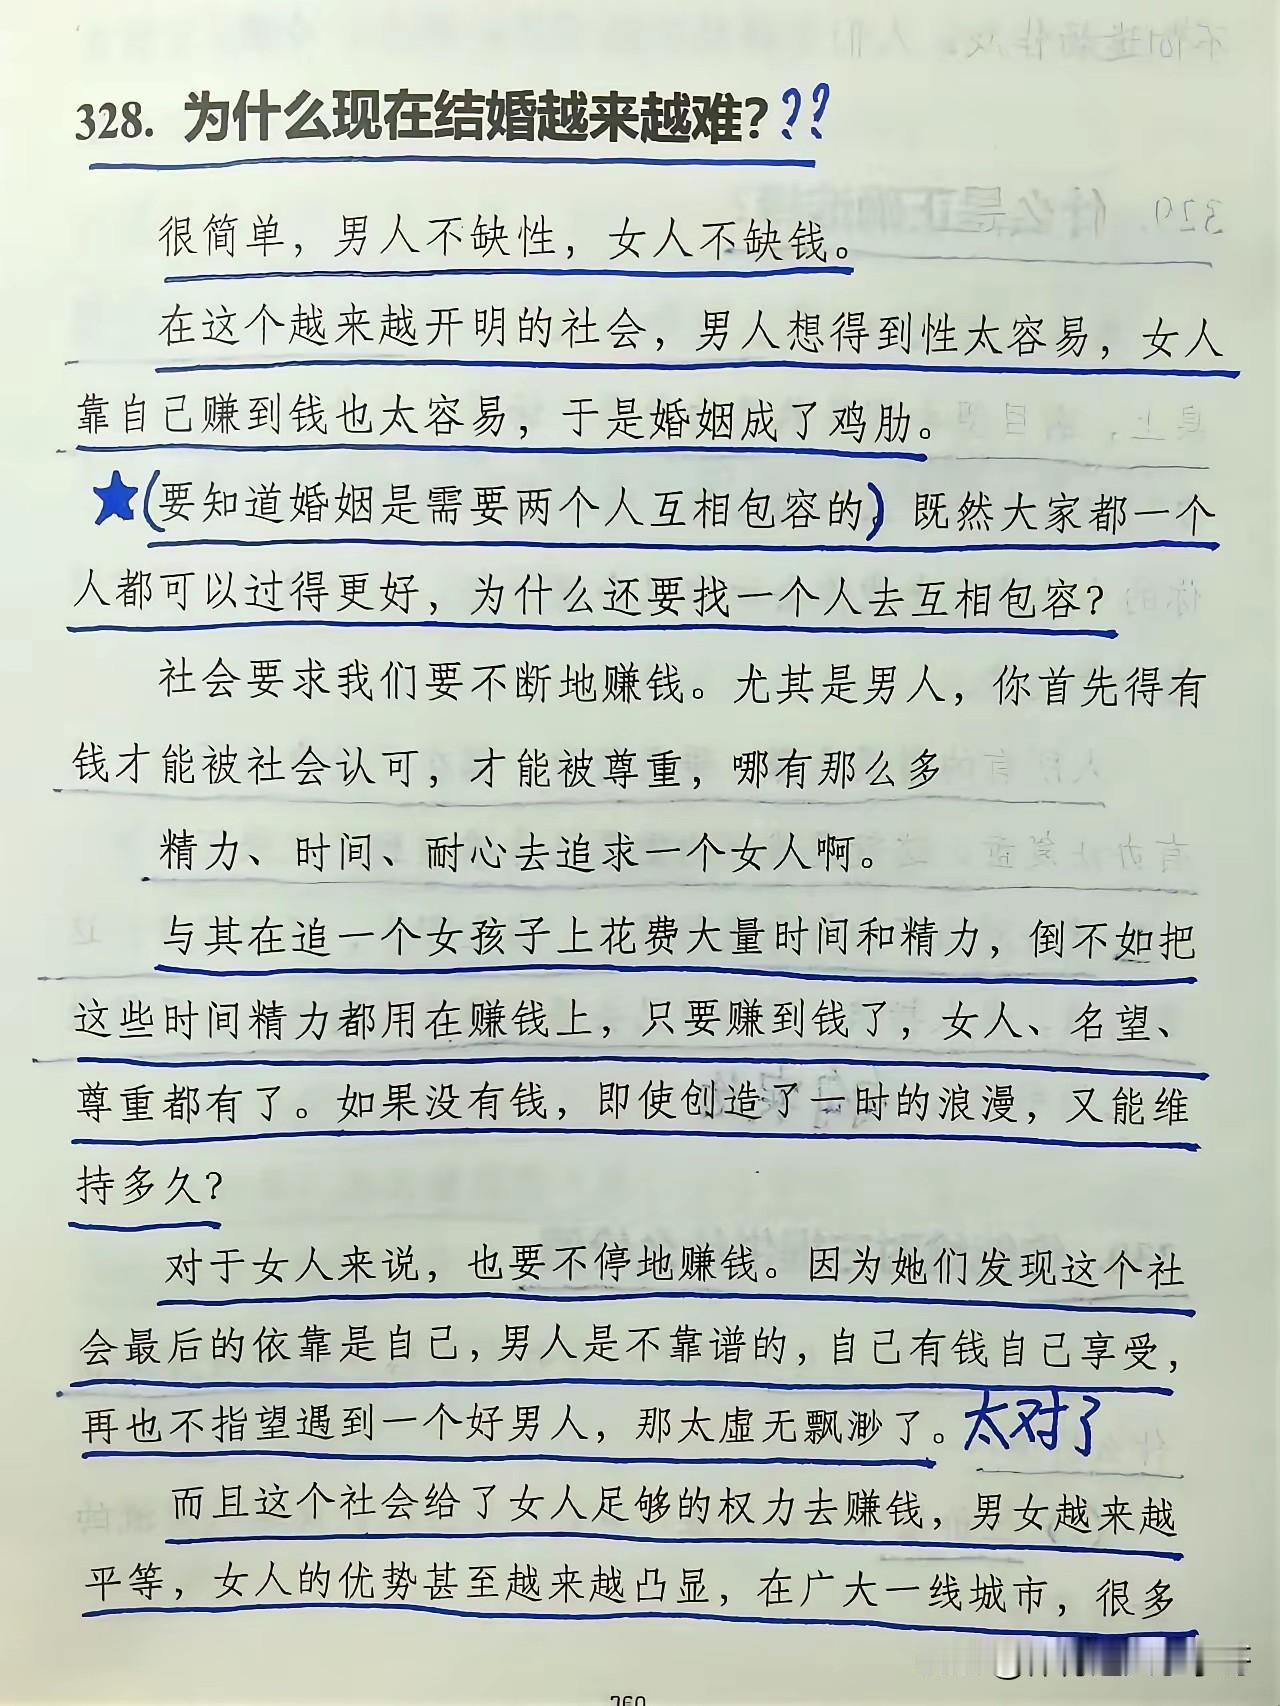 328. 为什么现在结婚越来越难？??
很简单，男人不缺性，女人不缺钱。
在这个越来越开明的社会，男人想得到性太容易，女人
靠自己赚到钱也太容易，于是婚姻成了鸡肋。
★(要知道婚姻是需要两个人互相包容的)，既然大家都一个
人都可以过得更好，为什么还要找一个人去互相包容？
社会要求我们要不断地赚钱。尤其是男人，你首先得有
钱才能被社会认可，才能被尊重，哪有那么多
精力、时间、耐心去追求一个女人啊。
与其在追一个女孩子上花费大量时间和精力，倒不如把
这些时间精力都用在赚钱上，只要赚到钱了，女人、名望、
尊重都有了。如果没有钱，即使创造了一时的浪漫，又能维
持多久？
对于女人来说，也要不停地赚钱。因为她们发现这个社
会最后的依靠是自己，男人是不靠谱的，自己有钱自己享受，
再也不指望遇到一个好男人，那太虚无飘渺了。太对了
而且这个社会给了女人足够的权力去赚钱，男女越来越
平等，女人的优势甚至越来越凸显，在广大一线城市，很多